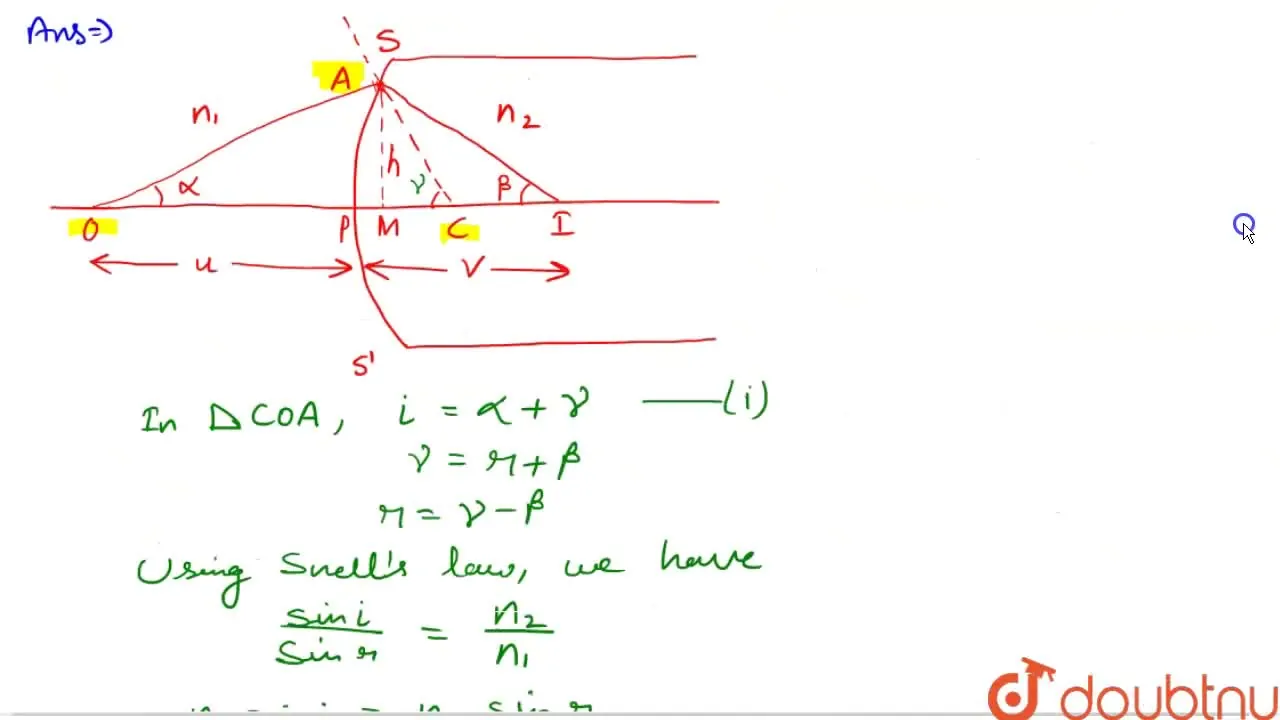 Ans⇒
S
A
n₁
n₂
h
α
ν
β
O
P
M
C
I
u
V
S'
In △COA, i = α + ν ——(i)
ν = r + β
r = ν − β
Using Snell's law, we have
sin i / sin r = n₂ / n₁
doubtnut